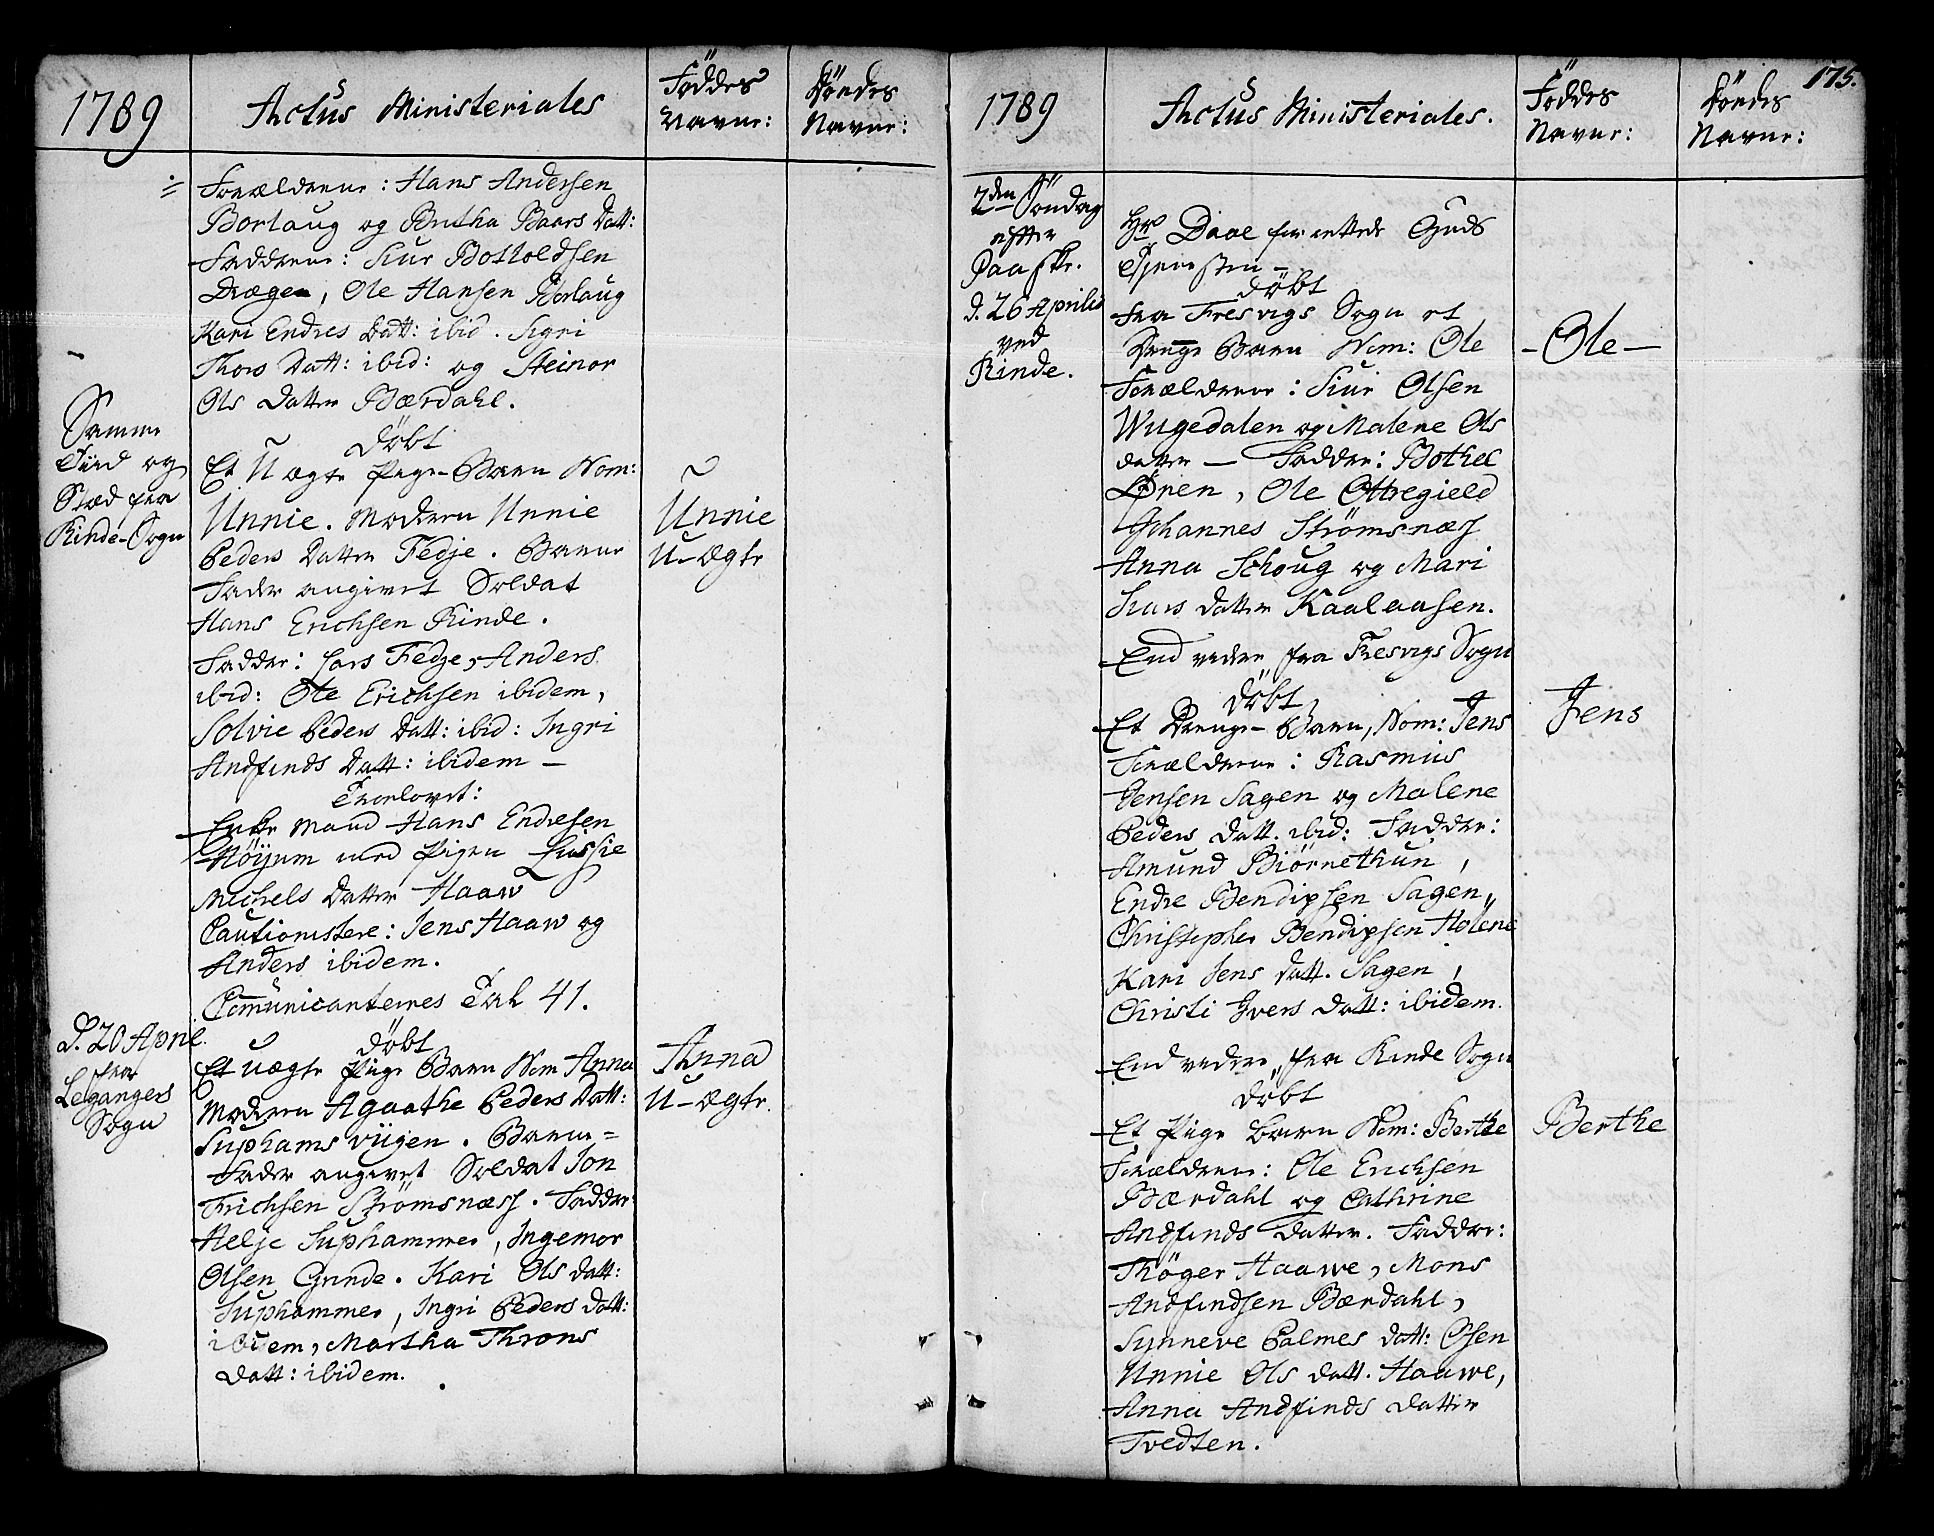 1789
Actus Ministeriales
Föddes
Navne:
Döedes
Navne:
Forældrene: Hans Andersen
Borlaug og Britha Baars Datt:
Fadderne: Siur Botholdsen
Dræge, Ole Hansen Borlaug
Kari Endres Datt: ibid. Sigri
Thors Datt: ibid: og Steinor
Ols Datter Bærdahl.
Samme
Tiid og
Stæd fra
Rinde-Sogn
Döbt
Et Uægte Pige-Barn Nom:
Unnie. Moderen Unnie
Peders Datter Fedje. Barne
Fader angivet Soldat
Hans Erichsen Rinde.
Fadder: Lars Fedje, Anders
ibid: Ole Erichsen ibidem,
Solvie Peders Datt: ibid: Ingri
Andfinds Datt: ibidem —
Unnie
U-ægte
Troelovet:
Enke Mand Hans Endresen
Höijum med Pigen Lussie
Michels Datter Haaw
Cautionistere: Jens Haaw og
Anders ibidem.
Comunicanternes Tal 41.
D. 20 April.
fra
Leganger
Sogn
Döbt
Et uægte Pige Barn Nom Anna
Moderen Agaathe Peders Datt:
Suphamsviigen. Barne=
Fader angivet Soldat Jon
Erichsen Strömsnæss. Fadder:
Helje Suphammer, Ingemor
Olsen Grinde. Kari Ols Datt:
Suphammer, Ingri Peders Datt:
ibidem, Martha Throns
Datt: ibidem.
Anna
U-ægte.
175.
1789
Actus Ministeriales.
Föddes
Navne:
Döedes
Navne:
2den Söndag
efter
Paaske.
d. 26 Aprilis
ved
Rinde.
Hr Daae forrettede Guds
Tjenesten —
Döbt
fra Fresvigs Sogn et
Drenge Barn Nom: Ole
Forældrene: Siur Olsen
Wugedalen og Malene Ols
datter — Fadder: Bothel
Lönen, Ole Ottregield
Johannes Strömsnæss
Anna Schoug og Mari
Siurs Datter Kaalaasen.
- Ole -
End videre fra Fresvigs Sogn
Döbt,
Et Drenge-Barn, Nom: Jens
Forældrene: Rasmus
Jensen Sagen og Malene
Peders Datt. ibid: Fadder:
Amund Biörnethun,
Endre Bendixsen Sagen,
Christopher Bendixsen Holene
Kari Jens Datt. Sagen,
Christi Ivers Datt: ibidem.
Jens
End videre, fra Rinde Sogn
Döbt
Et Pige Barn Nom: Berthe
Forældrene: Ole Erichsen
Bærdahl og Cathrine
Andfinds Datter. Fadder:
Thöger Haawe, Mons
Andfindsen Bærdahl,
Synneve Palmes Datt: Ösen
Unnie Ols Datt. Haawe,
Anna Andfinds Datter
Tvedten.
Berthe